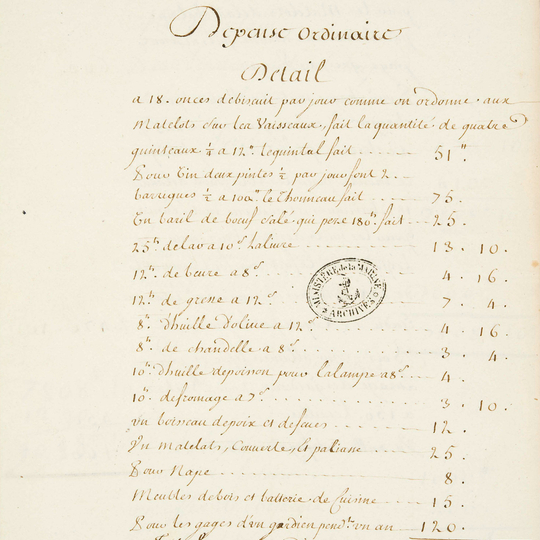 Depense ordinaire
Detail
a 18. onces de biscuit par jour comme on ordonne aux
Matelots sur les Vaisseaux, fait la quantité de quatre
quinteaux ¼ a 12ᵗᵗ le quintal fait ...... 51ᵗᵗ.
Pour Vin deux pintes ½ par jour font 2..
barriques ½ a 100ᵗᵗ le Thonneau fait .... 75.
Un baril de boeuf salé qui peze 180ᵗᵗ. fait .. 25.
25ᵗᵗ de lar a 10ˢ. la liure ........ 13. 10.
12ᵗᵗ. de beure a 8ˢ ........ 4. 16.
12ᵗᵗ. de grene a 12ˢ ........ 7. 4.
8ᵗᵗ. d'huille d'oliue a 12ˢ ........ 4. 16.
8ᵗᵗ. de chandelle a 8ˢ ........ 3. 4.
10ᵗᵗ. d'huille de poison pour la lampe a 8ˢ .... 4.
10ᵗᵗ. de fromage a 7ˢ ........ 3. 10.
un boisseau de poix et de feues ....... 12.
Un Matelats, Couuerte, et paliasse .... 25.
Pour Nape ................ 8.
Meubles de bois et batterie de Cuisine .... 15.
Pour les gages d'vn gardien pendᵗ. vn an .... 120.
MINISTÈRE de la MARINE
ARCHIVES